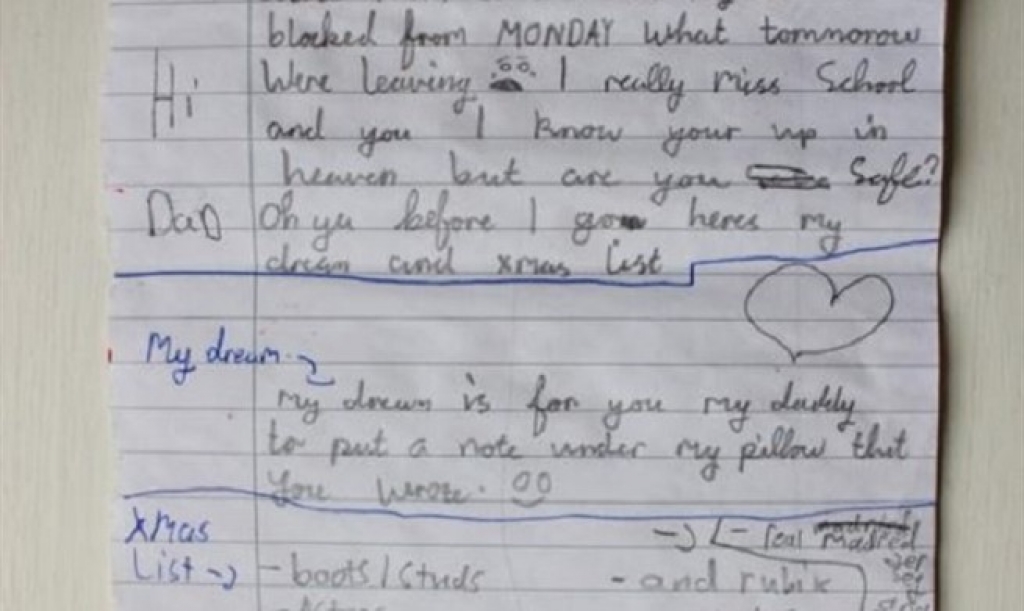 blocked from MONDAY what tommorow
Hi were leaving I really miss School
and you I know your up in
heaven but are you Safe?
Dad Oh ya before I go heres my
dream and xmas list
My dream
My dream is for you my daddy
to put a note under my pillow that
you wrote.
Xmas - real Madrid
List - boots/studs - and rubix